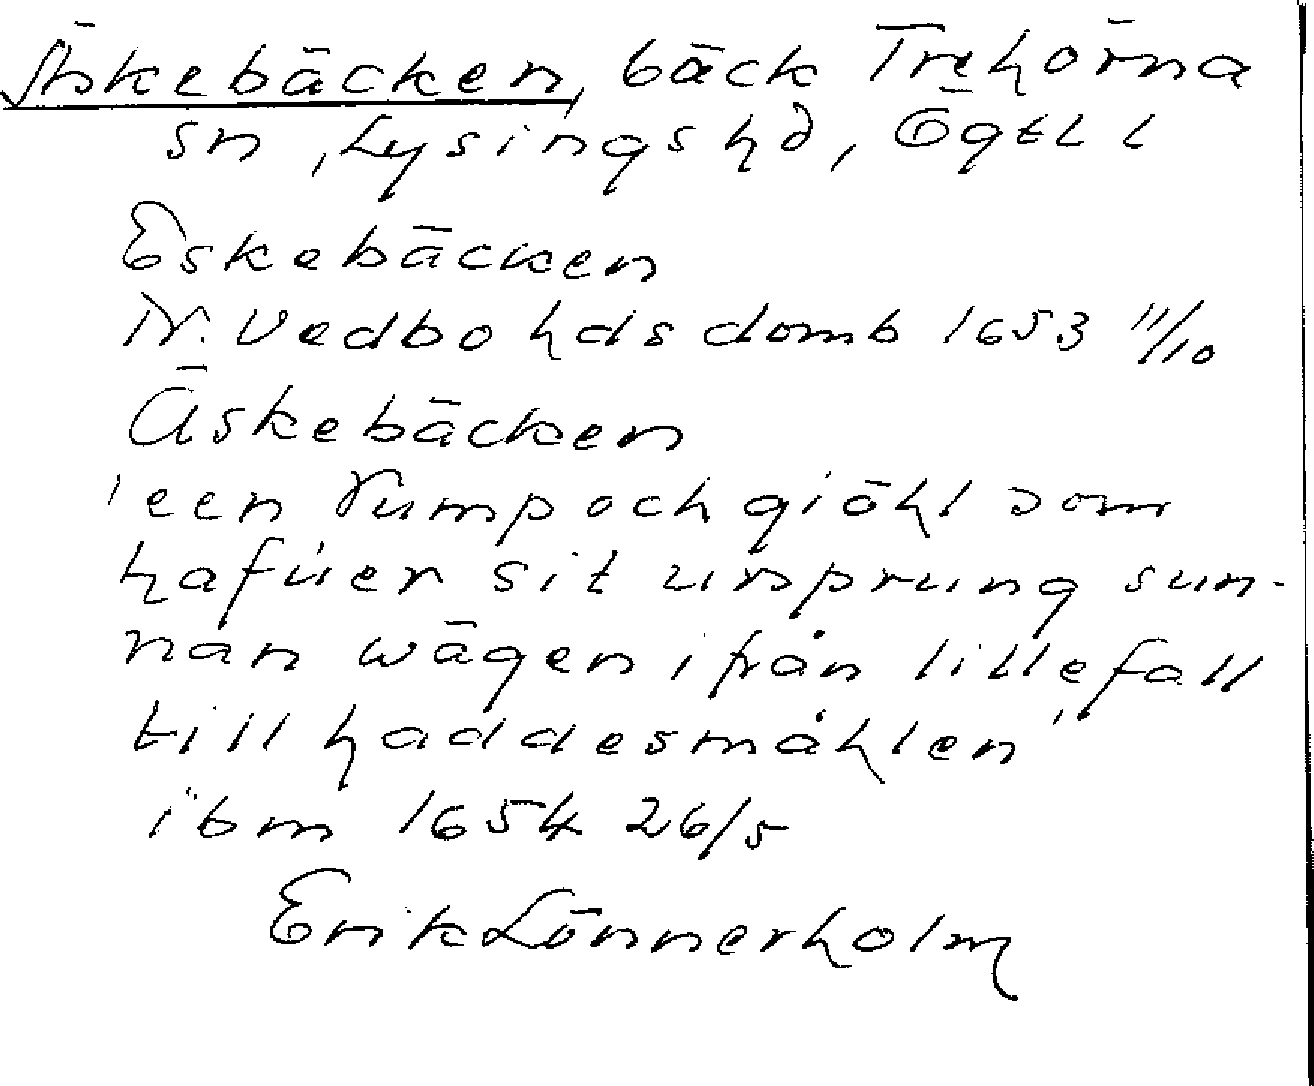 Äskebäcken, bäck Trehörna
sn, Lysings hd, Ögtl l
Eskebäcken
N. Vedbo hds domb 1653 11/10
Äskebäcken
'een rump och giöhl som
hafuer sit ursprung sun-
nan wägen ifrån lillefall
till haddesmåhlen'
ibm 1654 26/5
Erik Lönnerholm